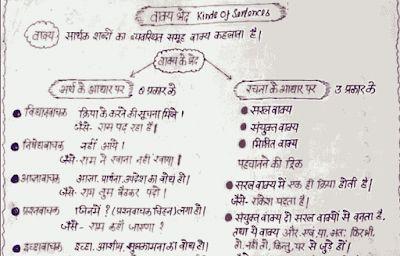 वाक्य भेद Kinds Of Sentences
वाक्य सार्थक शब्दों का व्यवस्थित समूह वाक्य कहलाता है।
वाक्य के भेद
अर्थ के आधार पर 8 प्रकार के
रचना के आधार पर 3 प्रकार के
विधानवाचक क्रिया के करने की सूचना मिले।
जैसे- राम पढ़ रहा है।
निषेधवाचक नहीं आये।
जैसे- राम ने खाना नहीं खाया।
आज्ञावाचक आज्ञा, प्रार्थना, उपदेश का बोध हो।
जैसे- राम तुम बैठकर पढ़ो।
प्रश्नवाचक जिनमें ? (प्रश्नवाचक चिह्न) लगा हो।
जैसे- राम कहाँ जाएगा ?
इच्छावाचक इच्छा, आशीष, शुभकामना का बोध हो।
सरल वाक्य
संयुक्त वाक्य
मिश्रित वाक्य
पहचानने की ट्रिक
सरल वाक्य में एक ही क्रिया होती है।
जैसे- राकेश पढ़ता है।
संयुक्त वाक्य दो सरल वाक्यों से बनता है,
तथा ये वाक्य और, एवं, या, अतः फिर भी,
तो, नहीं तो, किन्तु, पर से जुड़े हों।